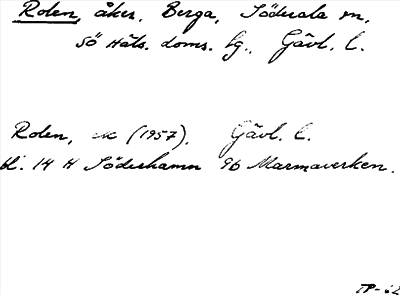 Rolen, åker, Berga, Söderala sn,
Sö Häls. doms. lg., Gävl. l.
Rolen, ek (1957). Gävl. l.
bl. 14 H Söderhamn 9b Marmaverken.
TP-62